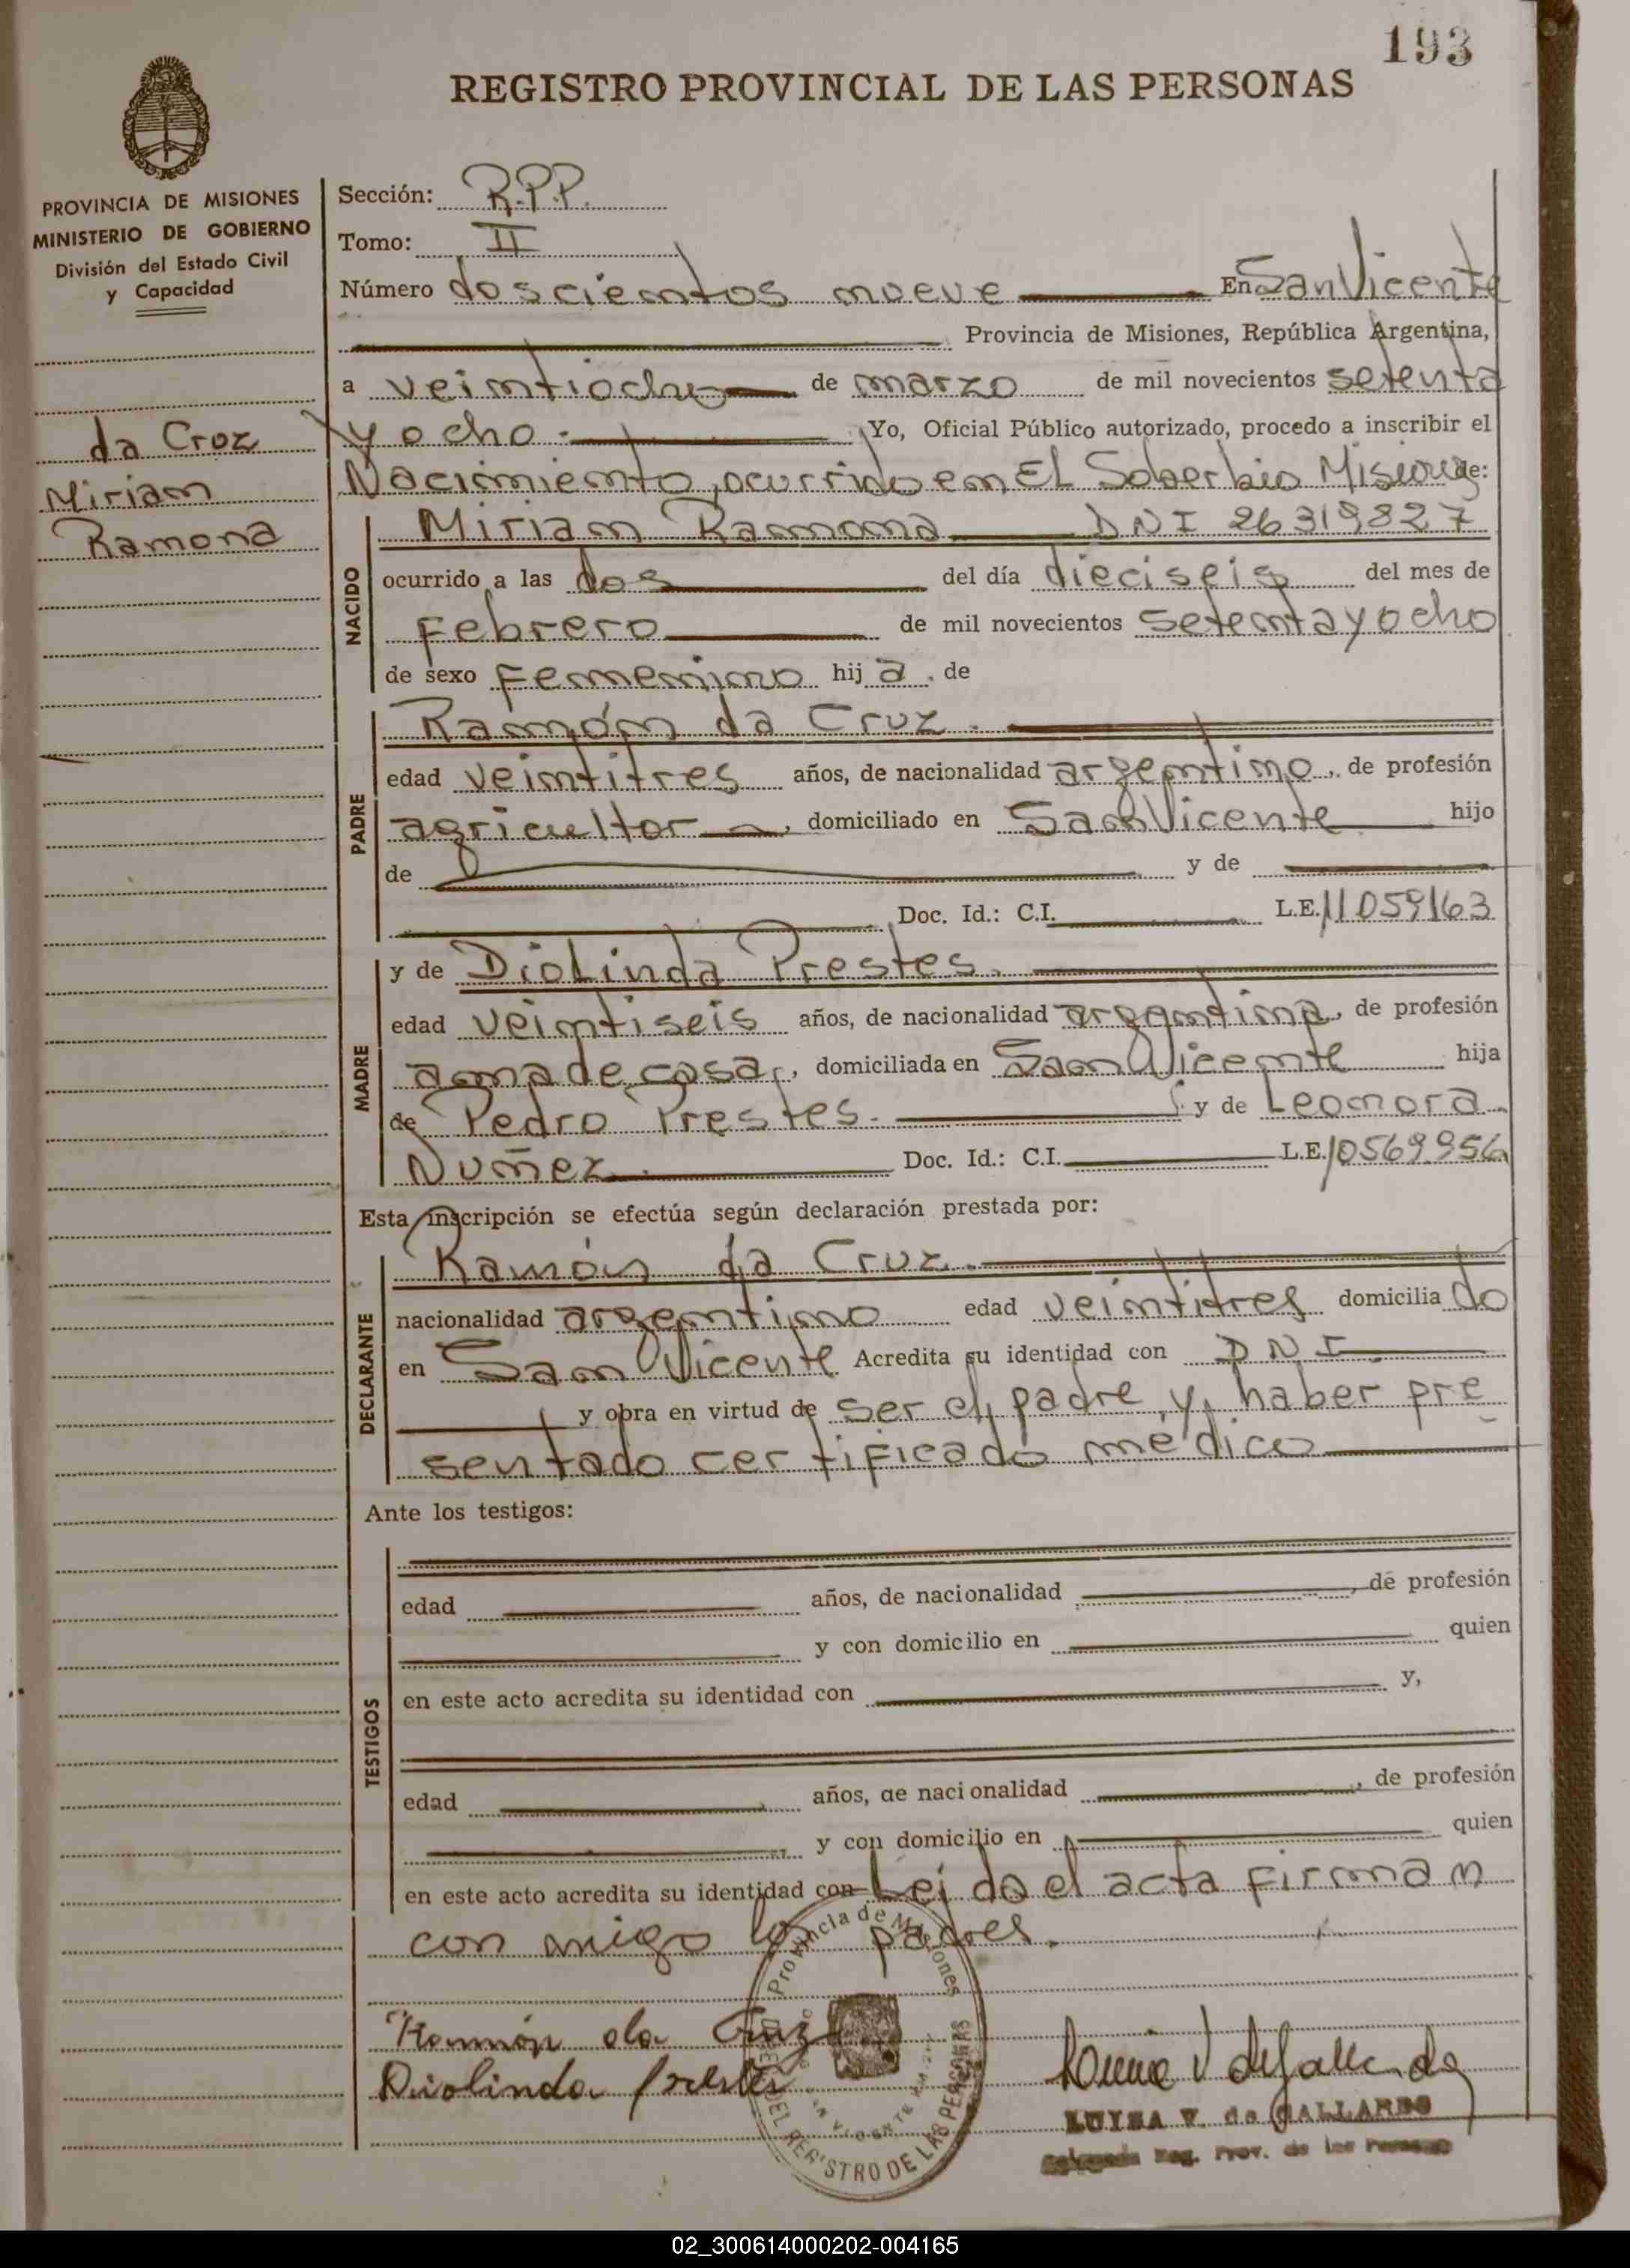 193
REGISTRO PROVINCIAL DE LAS PERSONAS
PROVINCIA DE MISIONES
MINISTERIO DE GOBIERNO
División del Estado Civil
y Capacidad
da Cruz
Miriam
Ramona
Sección: R.P.P.
Tomo: II
Número doscientos nueve En San Vicente
Provincia de Misiones, República Argentina,
a veintiocho de marzo de mil novecientos setenta
y ocho. Yo, Oficial Público autorizado, procedo a inscribir el
Nacimiento, ocurrido en El Soberbio Misiones de:
NACIDO
Miriam Ramona DNI 26319827
ocurrido a las dos del día dieciseis del mes de
Febrero de mil novecientos setenta y ocho
de sexo Femenino hija. de
PADRE
Ramón da Cruz.
edad veintitres años, de nacionalidad argentino, de profesión
agricultor, domiciliado en San Vicente hijo
de y de
Doc. Id.: C.I. L.E. 11059163
MADRE
y de Diolinda Prestes.
edad veintiseis años, de nacionalidad argentina, de profesión
ama de casa, domiciliada en San Vicente hija
de Pedro Prestes. y de Leonora
Nuñez. Doc. Id.: C.I. L.E. 10569956
Esta inscripción se efectúa según declaración prestada por:
DECLARANTE
Ramón da Cruz.
nacionalidad argentino edad veintitres domiciliado
en San Vicente Acredita su identidad con DNI
y obra en virtud de ser el padre, y haber pre
sentado certificado médico
Ante los testigos:
TESTIGOS
edad años, de nacionalidad, de profesión
y con domicilio en quien
en este acto acredita su identidad con y,
edad años, de nacionalidad, de profesión
y con domicilio en quien
en este acto acredita su identidad con Leido el acta firman
con migo los padres.
Provincia de Misiones
DEL REGISTRO DE LAS PERSONAS
SAN VICENTE
Ramón da Cruz
Diolinda Prestes
LUISA V. de GALLARDO
Delegada Reg. Prov. de las Personas
02_300614000202-004165